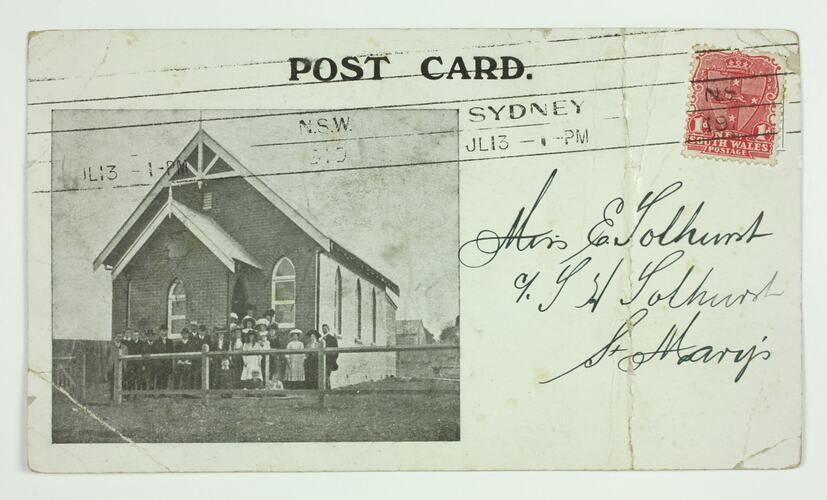 POST CARD.
N.S.W. SYDNEY
JL13 - 1 - PM JL13 - 1 - PM
NS
19
1D NEW 1D
SOUTH WALES
POSTAGE
Miss E. Tolhurst
c/. S W Tolhurst
St. Mary's